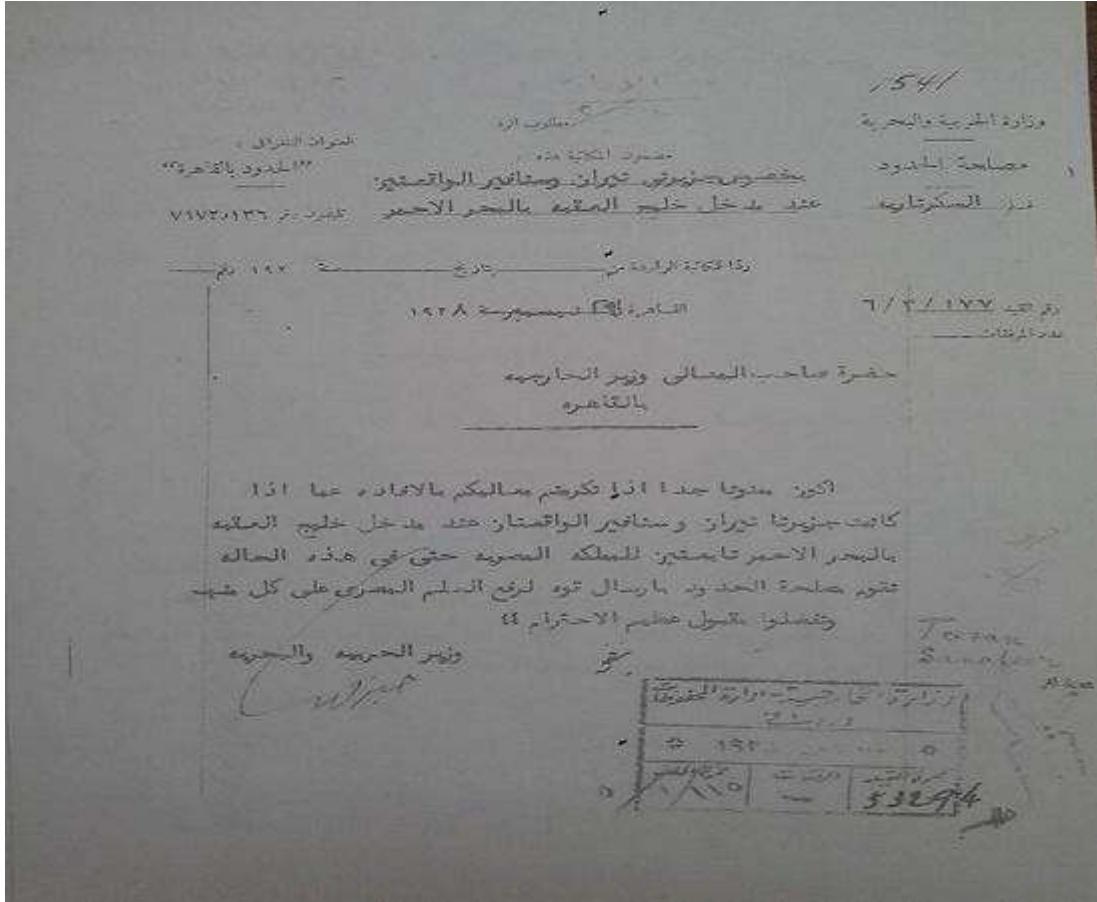 1541
وزارة الحربية والبحرية
مصلحة الحدود
السكرتاريه
مطلوب الرد
مضمون المكاتبة هذه :
بخصوص جزيرتى تيران وسنافير الواقعتين
عند مدخل خليج العقبه بالبحر الاحمر
العنوان التلغرافى :
"الحدود بالقاهرة"
تليفون
ردا للمكاتبة الواردة من بتاريخ سنة ١٩٢ رقم
رقم القيد ٦ / ٣ / ١٧٧
عدد المرفقات
القاهرة ديسمبر سنة ١٩٢٨
حضرة صاحب المعالى وزير الخارجيه
بالقاهره
اكون ممنونا جدا اذا تكرمتم معاليكم بالافاده عما اذا
كانت جزيرتا تيران وسنافير الواقعتان عند مدخل خليج العقبه
بالبحر الاحمر تابعتين للمملكه المصريه حتى فى هذه الحاله
تقوم مصلحة الحدود بارسال قوه لرفع العلم المصرى على كل منهما
وتفضلوا بقبول عظيم الاحترام
وزير الحربيه والبحريه
Sanafeer
وزارة الخارجية - ادارة المحفوظات
53294